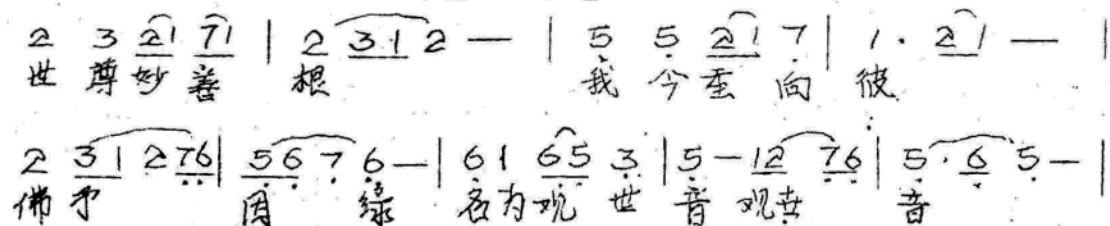 2 3 21 71 | 2 31 2 — | 5 5 21 7 | 1· 21 — |
世 尊 妙 善 根 我 今 重 向 彼
2 31 2 76 | 56 7 6 — | 6 1 65 3 | 5 — 12 76 | 5· 6 5 — |
佛 因 缘 名 为 观 世 音 观 世 音